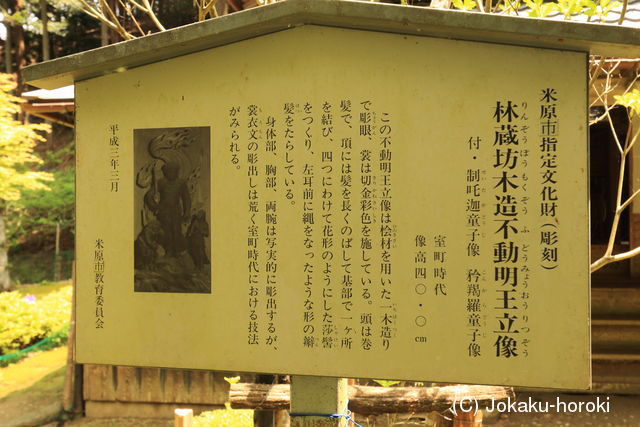 米原市指定文化財(彫刻)
りんぞうぼうもくぞう ふ どうみょうおう りつぞう
林蔵坊木造不動明王立像
せいたかどうじ こんからどうじ
付・制吒迦童子像 矜羯羅童子像
室町時代
像高四〇・〇cm
この不動明王立像は桧材を用いた一木造り
で彫眼、裳は切金彩色を施している。頭は巻
髪で、項には髪を長くのばして基部で一ヶ所
を結び、四つにわけて花形のようにした莎髻
をつくり、左耳前に縄をなったような形の辮
髪をたらしている。
身体部、胸部、両腕は写実的に彫出するが、
裳衣文の彫出しは荒く室町時代における技法
がみられる。
平成三年三月
米原市教育委員会
(C) Jokaku-horoki